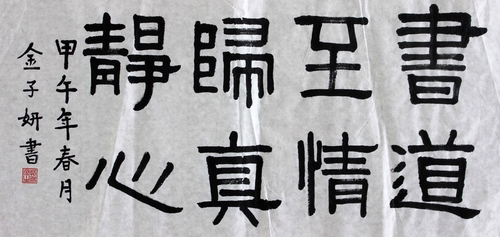 書道
至情
歸真
靜心
甲午年春月
金子妍書